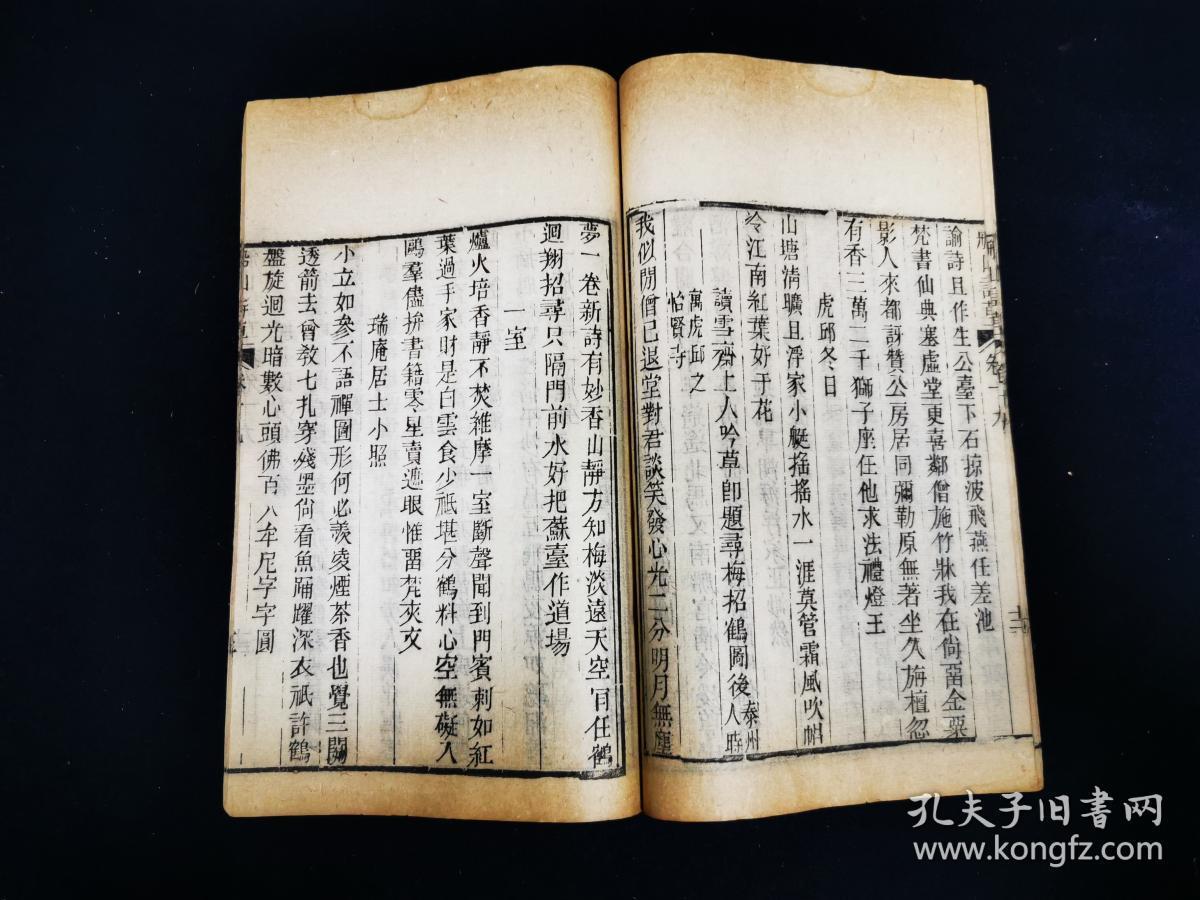 諭詩且作生公臺下石掠波飛燕任差池
梵書仙典塞虛堂更喜鄰僧施竹牀我在尙畱金粟
影人來都訝贊公房居同彌勒原無著坐久旃檀忽
有香三萬二千獅子座任他求法禮燈王
虎邱冬日
山塘淸曠且浮家小艇搖搖水一涯莫管霜風吹帽
冷江南紅葉好于花
讀雪齋上人吟草卽題尋梅招鶴圖後泰州人時
寓虎邱之
怡賢寺
我似閒僧已退堂對君談笑發心光二分明月無塵
夢一卷新詩有妙香山靜方知梅淡遠天空盲任鶴
迴翔招尋只隔門前水好把蘇臺作道場
一室
爐火培香靜不焚維摩一室斷聲聞到門賓刺如紅
葉過手家財是白雲食少祇堪分鶴料心空無礙入
鷗羣儘拚書籍零星賣遮眼惟畱梵夾文
瑞庵居士小照
小立如參不語禪圖形何必羨凌煙茶香也覺三關
透箭去曾敎七扎穿殘墨尙看魚踊躍深衣祇許鶴
盤旋迴光暗數心頭佛百八牟尼字字圓
孔夫子旧书网
www.kongfz.com